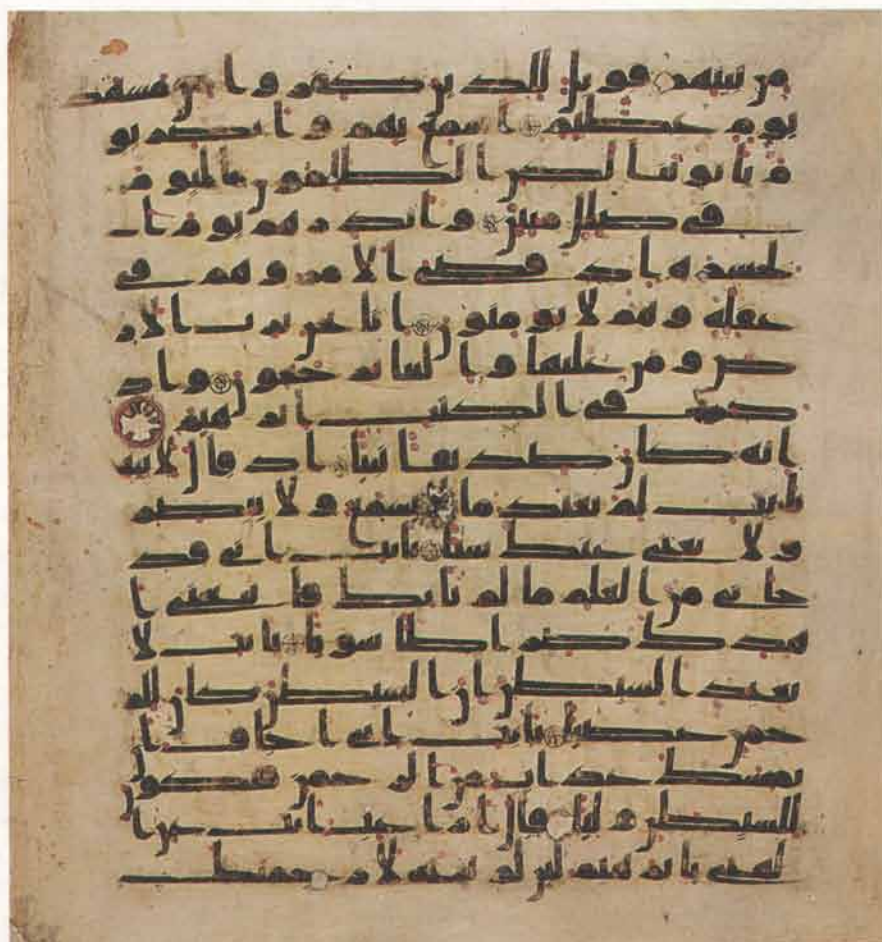 من بينهم فويل للذين كفروا من مشهد
يوم عظيم اسمع بهم وابصر يو
م ياتوننا لكن الظلمون اليوم
في ضلل مبين وانذرهم يوم ا
لحسرة اذ قضي الامر وهم في
غفلة وهم لا يومنون انا نحن نرث الار
ض ومن عليها والينا يرجعون واذ
كر في الكتب ابرهيم
انه كان صديقا نبيا اذ قال لابيه
يابت لم تعبد ما لا يسمع ولا يبصر
ولا يغني عنك شيا يابت اني قد
جاني من العلم ما لم ياتك فاتبعني ا
هدك صرطا سويا يابت لا
تعبد الشيطن ان الشيطن كان للر
حمن عصيا يابت اني اخاف ان
يمسك عذاب من الرحمن فتكون
للشيطن وليا قال اراغب انت عن ا
لهتي يابرهيم لين لم تنته لارجمنك